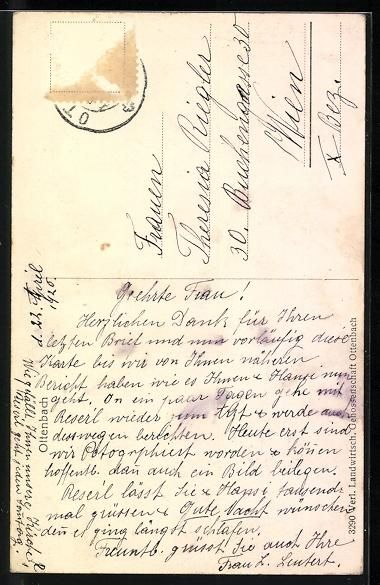 Frauen
Theresia Riegler
30. Buchengasse 30
Wien
X. Bez.
d. 22. April
1920.
Geehrte Frau!
Herzlichen Dank für Ihren
letzten Brief und nun vorläufig diese
Karte bis wir von Ihnen näheren
Bericht haben wie es Ihnen & Hansi nun
geht. In ein paar Tagen gehe mit
Reserl wieder zum Arzt & werde auch
deswegen berichten. Heute erst sind
wir Potographiert worden & können
hoffentl. dan auch ein Bild beilegen.
Reserl lässt Sie & Hansi tausend-
mal grüssen & Gute Nacht wünschen
den es ging längst schlafen.
Freuntl. grüsst Sie auch Ihre
Frau L. Leutert.
Ottenbach
3290 Verl. Landwirtsch. Genossenschaft Ottenbach